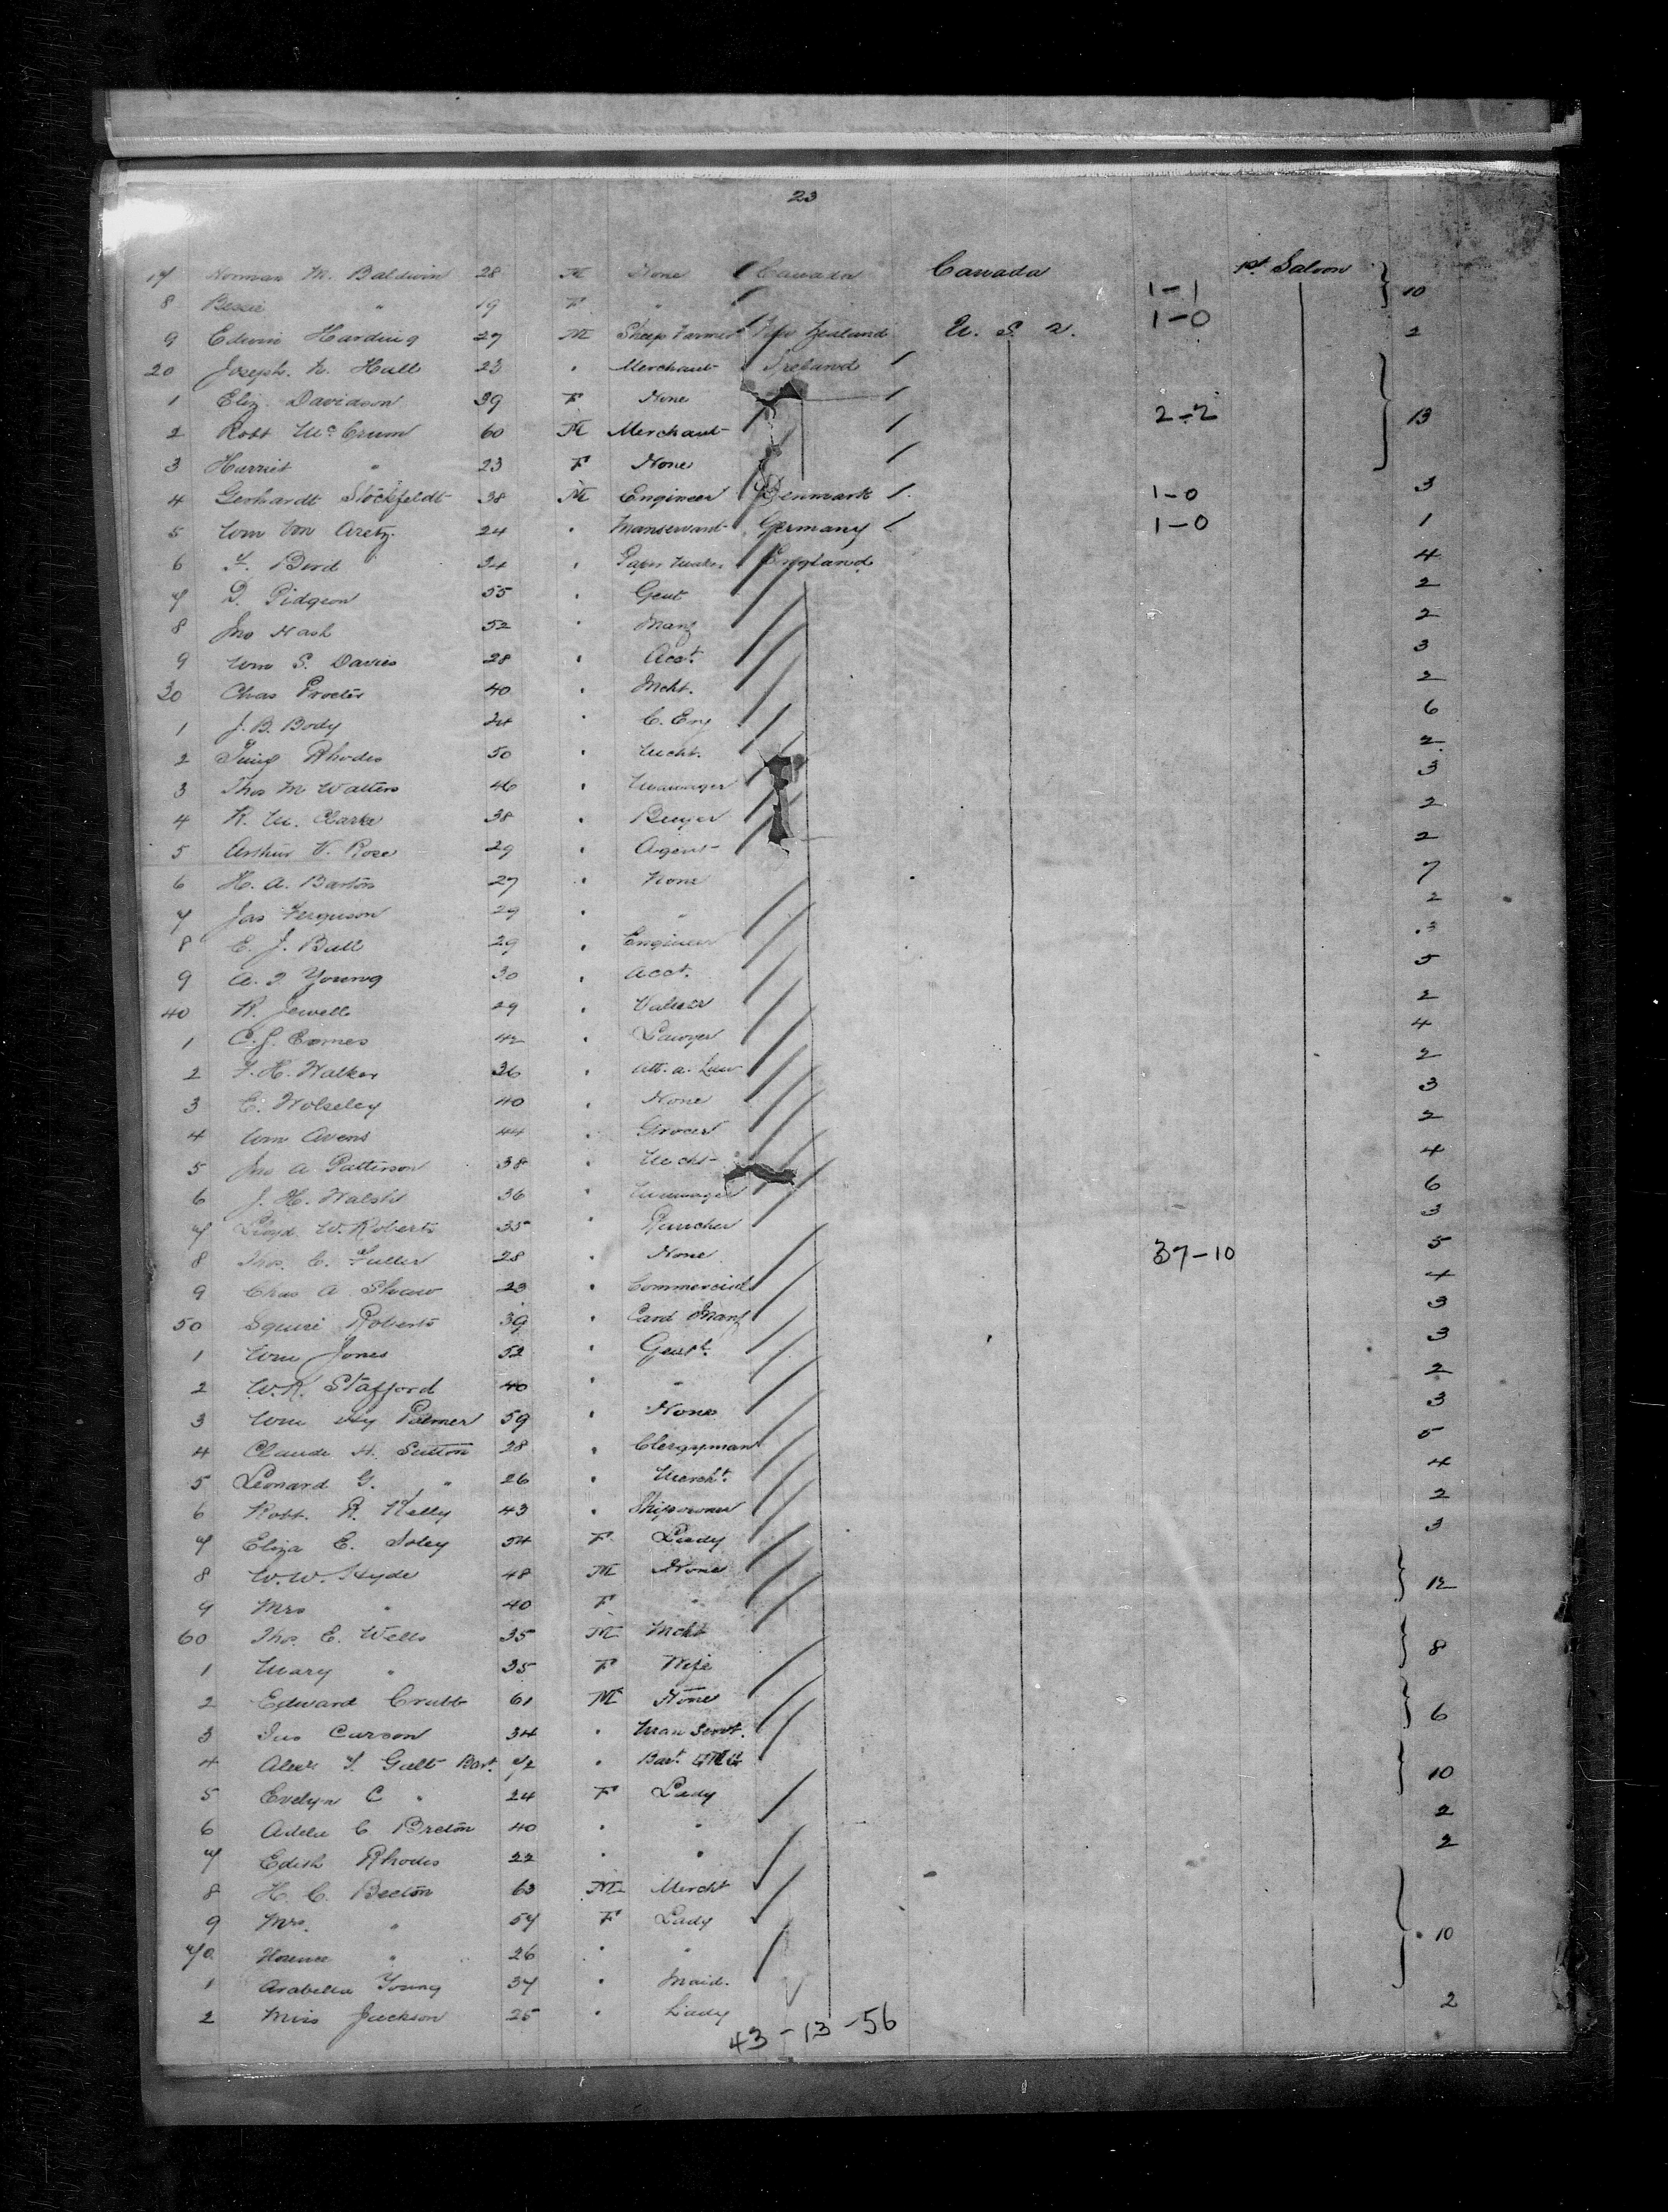 23
17 Norman M. Baldwin 28 M None Canada Canada 1-1 1st Saloon 10
8 Bessie " 19 F " "
9 Edwin Harding 27 M Sheep Farmer New Zealand U. S. A. 1-0 2
20 Joseph N. Hull 23 " Merchant Ireland
1 Eliz. Davidson 39 F None
2 Robt McCrum 60 M Merchant 2-2 13
3 Harriet " 23 F None
4 Gerhardt Stöckfeldt 38 M Engineer Denmark 1-0 3
5 Wm Von Aretz 24 " Manservant Germany 1-0 1
6 F. Bird 34 " Paper Maker England 4
7 D. Pidgeon 55 " Gent 2
8 Jno Nash 52 " Manf 2
9 Wm S. Davies 28 " Acct. 3
30 Chas Procter 40 " Mcht. 2
1 J. B. Body 24 " C. Eng 6
2 Rhodes 50 " Mcht. 2
3 Thos M Walters 46 " Manager 3
4 R. M. Clarke 38 " Buyer 2
5 Arthur V. Rose 29 " Agent 2
6 H. A. Barton 27 " None 7
7 Jas Ferguson 29 " " 2
8 E. J. Bull 29 " Engineer 3
9 A. J. Young 30 " Acct. 5
40 R. Jewell 29 " 2
1 C. J. Eames 42 " Lawyer 4
2 F. H. Walker 36 " Att. a. Law 2
3 E. Wolseley 40 " None 3
4 Wm Avens 44 " Grocer 2
5 Jno A Patterson 38 " Mcht 4
6 J. H. Walsh 36 " Manager 6
7 Lloyd W. Roberts 35 " Rancher 3
8 Thos. C. Fuller 28 " None 37-10 5
9 Chas A Shaw 23 " Commercial 4
50 Squire Roberts 39 " Card Manf 3
1 Wm Jones 52 " Gent. 3
2 W. R. Stafford 40 " " 2
3 Wm Hy Palmer 59 " None 3
4 Claude H. Sutton 28 " Clergyman 5
5 Leonard G. " 26 " Mercht. 4
6 Robt. R. Kelly 43 " Shipowner 2
7 Eliza E. Soley 54 F Lady 3
8 W. W. Hyde 48 M None 12
9 Mrs " 40 F "
60 Thos. E. Wells 35 M Mcht 8
1 Mary " 35 F Wife
2 Edward Crubb 61 M None 6
3 Jas Curson 34 " Man Servt.
4 Alexr T. Galt Bart. 72 " Bart. 10
5 Evelyn C " 24 F Lady
6 Adela C Breton 40 " " 2
7 Edith Rhodes 22 " " 2
8 H. C. Beeton 63 M Mercht 10
9 Mrs. " 57 F Lady
70 Florence " 26 " "
1 Arabella Young 37 " Maid.
2 Miss Jackson 25 " Lady 2
43-13-56